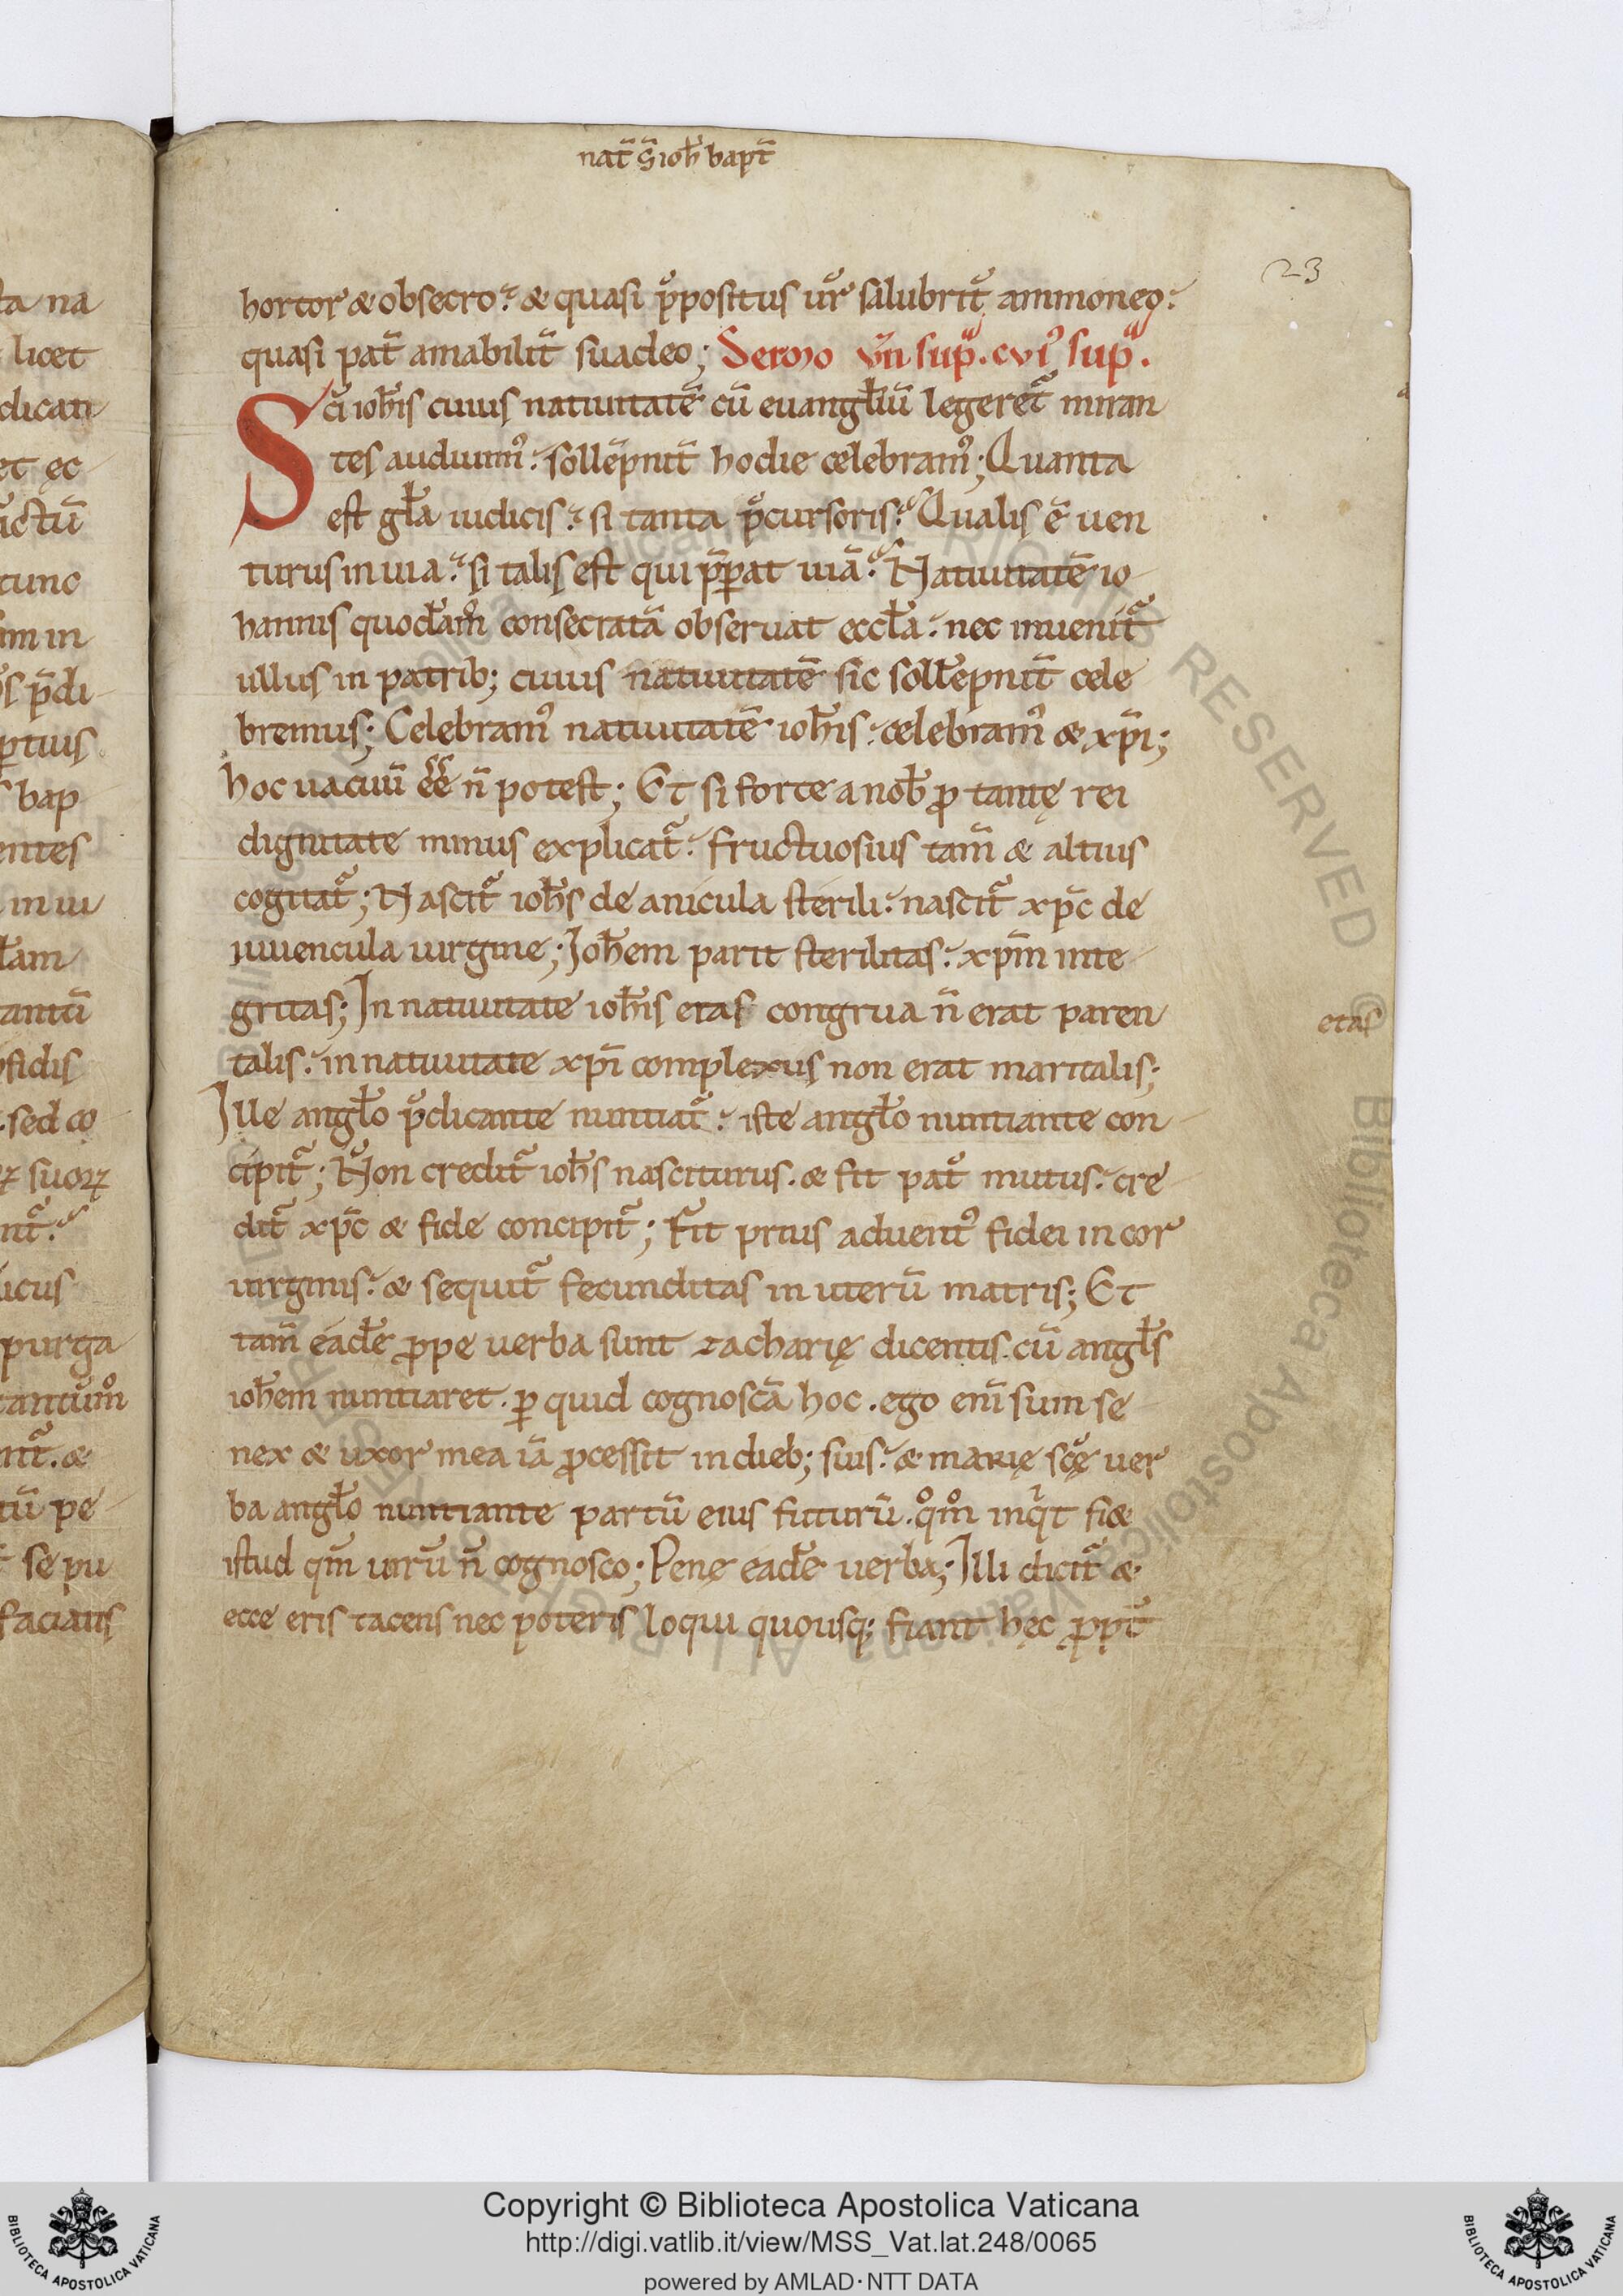 nat̄ s̄ ioh̄ bapt̄
23
hortor & obsecro. & quasi p̄positus ur̄ salubrit̄ ammoneo.
quasi pat̄ amabilit̄ suadeo; Sermo
Sc̄i ioh̄is cuius natiuitatē cū euangl̄iū legeret̄ miran
tes audiuim᾽. sollēpnit̄ hodie celebram᾽; Quanta
est gl̄a iudicis. si tanta p̄cursoris. Qualis ē uen
turus in uia. si talis est qui p̄parat uiā. Natiuitatē io
hannis quodām̄ consecratā obseruat eccl̄a. nec inuenit̄
ullus in patrib; cuius natiuitatē sic soll̄epnit̄ cele
bremus; Celebram᾽ natiuitatē ioh̄is. celebram᾽ & xp̄i;
hoc uacuū ēē n̄ potest; Et si forte a nob̄ ꝓ tantę rei
dignitate minus explicat̄. fructuosius tam̄ & altius
cogitat̄; Nascit̄ ioh̄s de anicula sterili. nascit̄ xp̄c de
iuuencula uirgine; Ioh̄em parit sterilitas. xp̄m inte
gritas; In natiuitate ioh̄is etas congrua n̄ erat paren
etas
talis. in natiuitate xp̄i complexus non erat maritalis;
Ille angl̄o p̄dicante nuntiat̄. iste angl̄o nuntiante con
cipit̄; Non credit̄ ioh̄s nasciturus. & fit pat̄ mutus. cre
dit̄ xp̄c & fide concipit̄; Fit prius aduent᾽ fidei in cor
uirginis. & sequit̄ fecunditas in uterū matris; Et
tam̄ eadē ꝓpe uerba sunt zacharię dicentis. cū angl̄s
ioh̄em nuntiaret. ꝑ quid cognoscā hoc. ego eni̅ sum se
nex & uxor mea iā ꝓcessit in dieb; suis. & marię sc̄ę uer
ba angl̄o nuntiante partū eius futurū. qōm̄ inqͥt fi&
istud qm̄ uirū n̄ cognosco; Penę eadē uerba; Illi dicit̄ &
ecce eris tacens nec poteris loqui quousq; fiant hęc ꝓpt̄
Copyright © Biblioteca Apostolica Vaticana
http://digi.vatlib.it/view/MSS_Vat.lat.248/0065
powered by AMLAD·NTT DATA
BIBLIOTECA APOSTOLICA VATICANA
BIBLIOTECA APOSTOLICA VATICANA